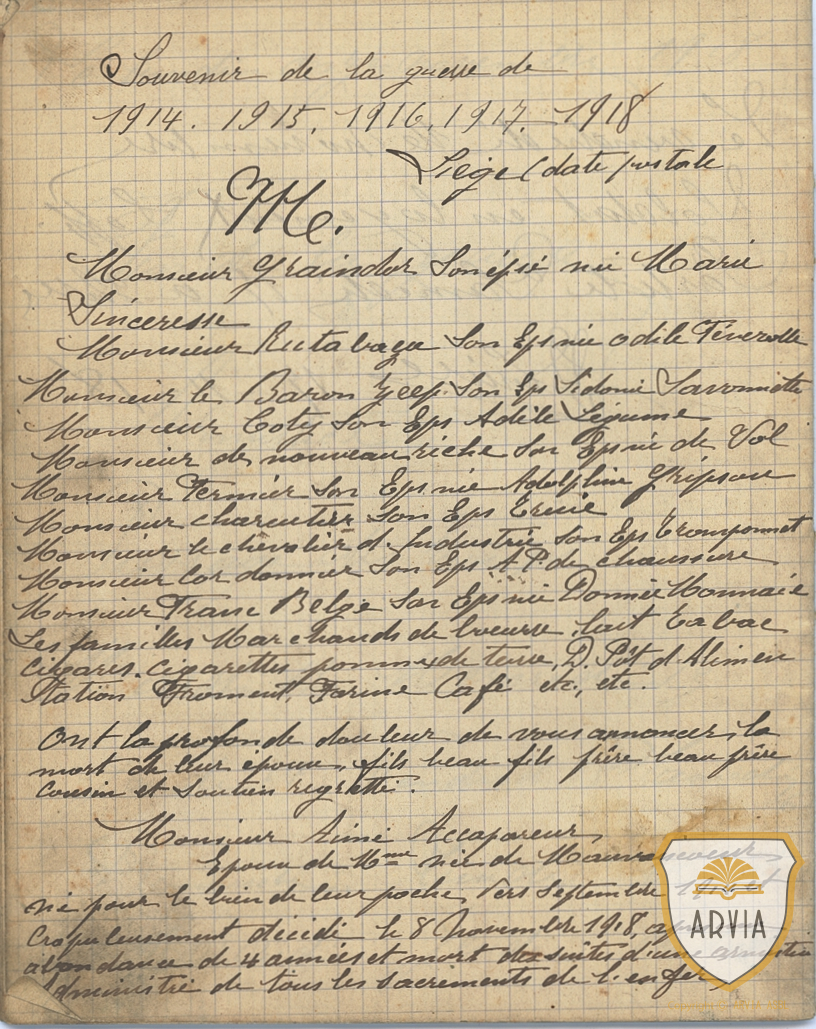 Souvenir de la guerre de
1914. 1915. 1916. 1917. 1918
Liége (date postale
M.
Monsieur Graindor Son née Marie
Sinceresse
Monsieur Rutabaga Son Eps née odile Féverolle
Monsieur le Baron Son Eps Sidonie Savonnette
Monsieur Coty Son Eps Adèle Légume
Monsieur de nouveau riche Son Eps née de Vol
Monsieur Fermier Son Eps née Adolphine Gripsou
Monsieur charcutier Son Eps
Monsieur le chevalier d. Industrie Son Eps
Monsieur Cordonnier Son Eps A.P. de chaussure
Monsieur Franc Belge Son Eps née Monnaie
Les familles Marchands de beurre, lait Tabac
Cigares. cigarettes pommes de terre, D. Pôt d'Alimen
tation Froment, Farine Café etc, etc.
Ont la profonde douleur de vous annoncer, la
mort de leur époux, fils beau fils frère beau frère
cousin et Soutien regretté.
Monsieur Aimé Accapareur
Epoux de Mme née de
né pour le bien de leur poche, Vers Septembre
Crapuleusement décédé le 8 Novembre 1918,
abondance de 4 années et mort des suites d'une
administré de tous les sacrements de l'enfer,
ARVIA